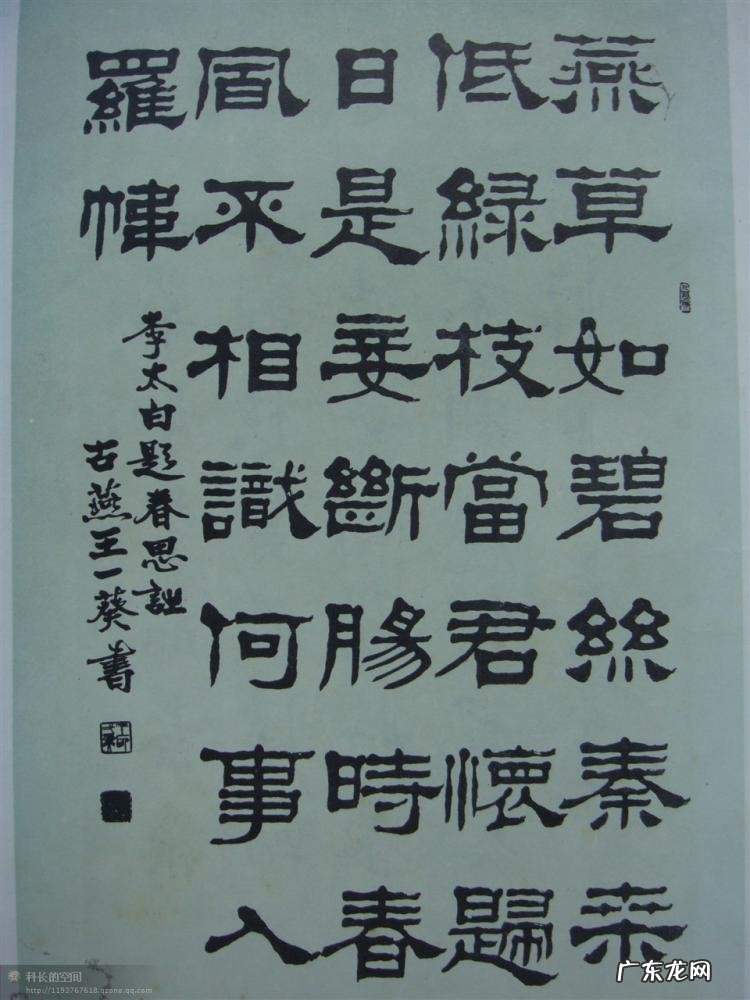 燕草如碧絲秦桒
低緑枝當君懷歸
日是妾斷腸時春
風不相識何事人
羅幃
李太白題春思詩
古燕王一葵書
科长的空间
http://1193767618.qzone.qq.com
广东龙网